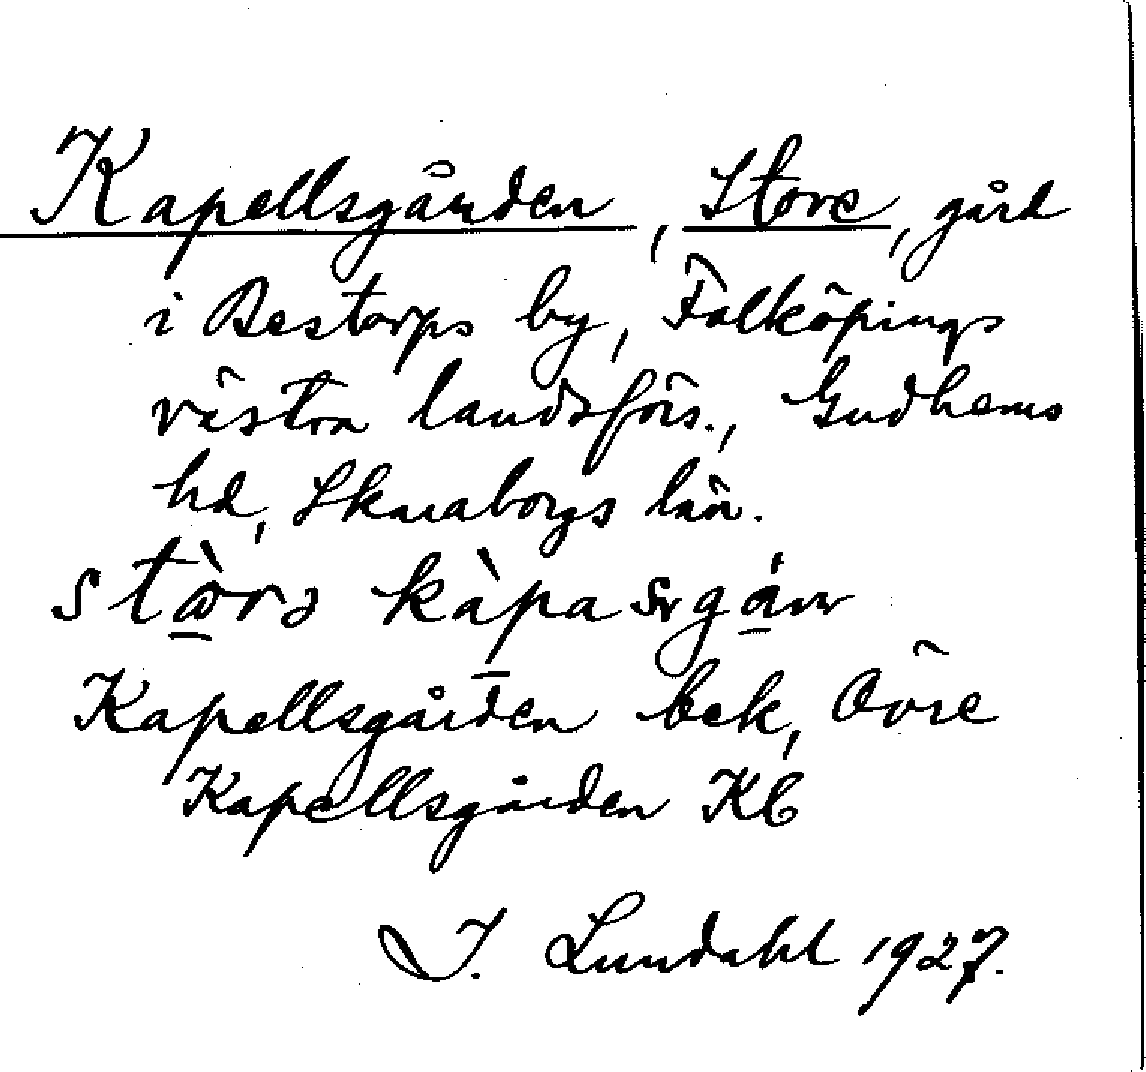 Kapellsgården, Store, gård
i Bestorps by, Falköpings
västra landsförs., Gudhems
hd, Skaraborgs län.
Kapellsgården bek, Övre
Kapellsgården Kb
I. Lundahl 1927.